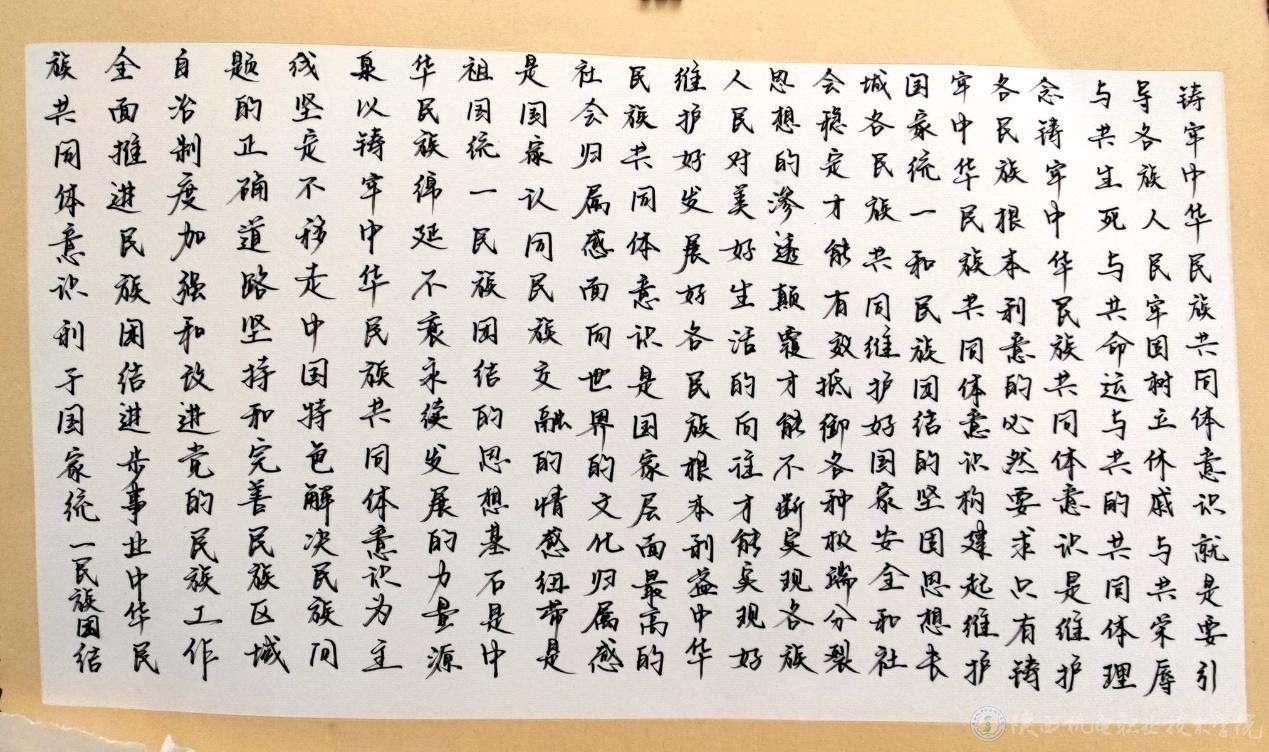 铸牢中华民族共同体意识就是要引
导各族人民牢固树立休戚与共荣辱
与共生死与共命运与共的共同体理
念铸牢中华民族共同体意识是维护
各民族根本利意的必然要求只有铸
牢中华民族共同体意识构建起维护
国家统一和民族团结的坚固思想长
城各民族共同维护好国家安全和社
会稳定才能有效抵御各种极端分裂
思想的渗透颠覆才能不断实现各族
人民对美好生活的向往才能实现好
维护好发展好各民族根本利益中华
民族共同体意识是国家层面最高的
社会归属感面向世界的文化归属感
是国家认同民族交融的情感纽带是
祖国统一民族团结的思想基石是中
华民族绵延不衰永续发展的力量源
泉以铸牢中华民族共同体意识为主
线坚定不移走中国特色解决民族问
题的正确道路坚持和完善民族区域
自治制度加强和改进党的民族工作
全面推进民族团结进步事业中华民
族共同体意识利于国家统一民族团结
陕西机电职业技术学院